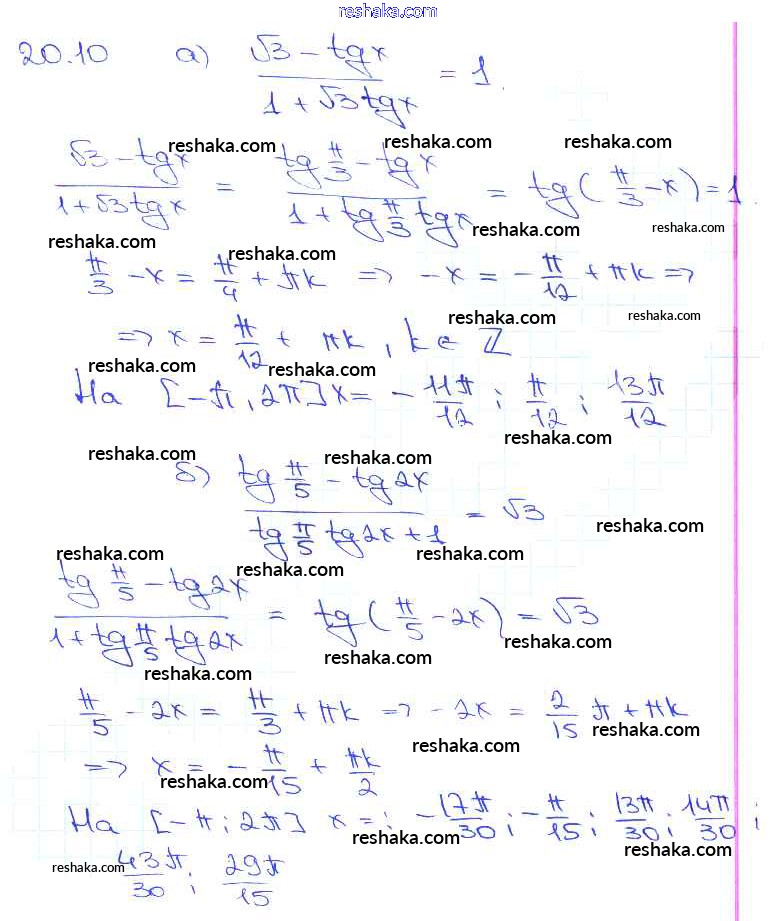 reshaka.com
20.10 а) (√3 - tgx)/(1 + √3tgx) = 1.
reshaka.com reshaka.com reshaka.com
(√3 - tgx)/(1+√3tgx) = (tg π/3 - tgx)/(1 + tg π/3 tgx) = tg(π/3 - x) = 1.
reshaka.com reshaka.com reshaka.com
reshaka.com
π/3 - x = π/4 + πk => -x = -π/12 + πk =>
reshaka.com reshaka.com
=> x = π/12 + πk, k ∈ Z
reshaka.com reshaka.com
На [-π, 2π] x = -11π/12; π/12; 13π/12
reshaka.com
reshaka.com reshaka.com
б) (tg π/5 - tg2x)/(tg π/5 tg2x + 1) = √3
reshaka.com
reshaka.com reshaka.com
reshaka.com
(tg π/5 - tg2x)/(1 + tg π/5 tg2x) = tg(π/5 - 2x) = √3
reshaka.com
reshaka.com
reshaka.com
π/5 - 2x = π/3 + πk => -2x = 2/15 π + πk
reshaka.com
reshaka.com
=> x = -π/15 + πk/2
reshaka.com
На [-π; 2π] x = : -17π/30; -π/15; 13π/30; 14π/30;
reshaka.com
reshaka.com
reshaka.com
43π/30; 29π/15